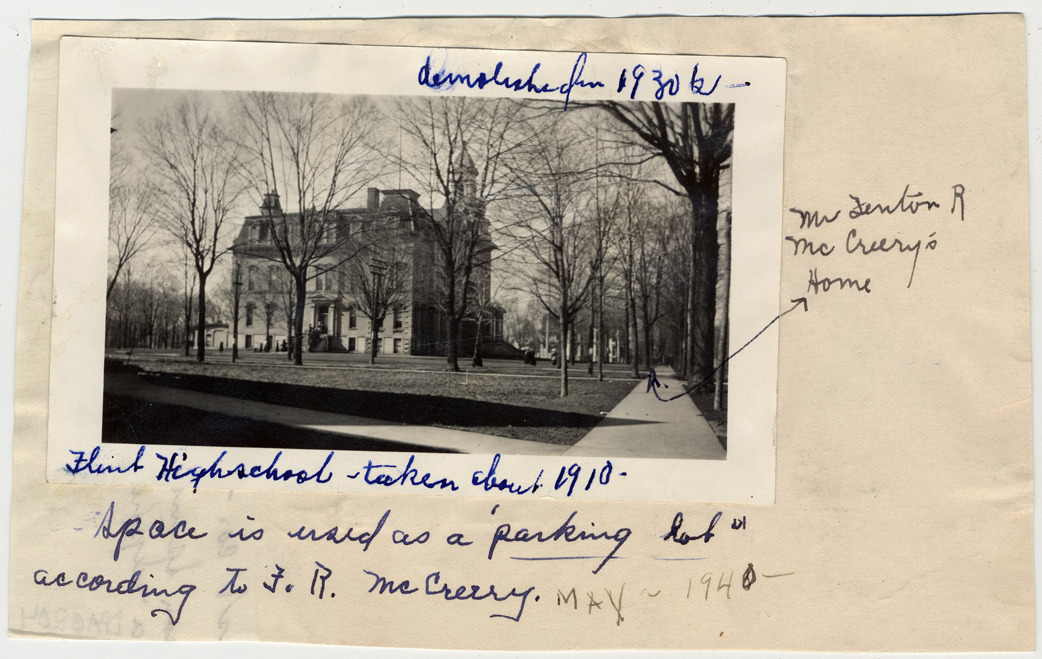 demolished in 1930
Mr Fenton R
Mc Creery's
Home
Flint High school - taken about 1910 -
Space is used as a "parking lot"
according to F. R. McCreery. MAY - 1940 -